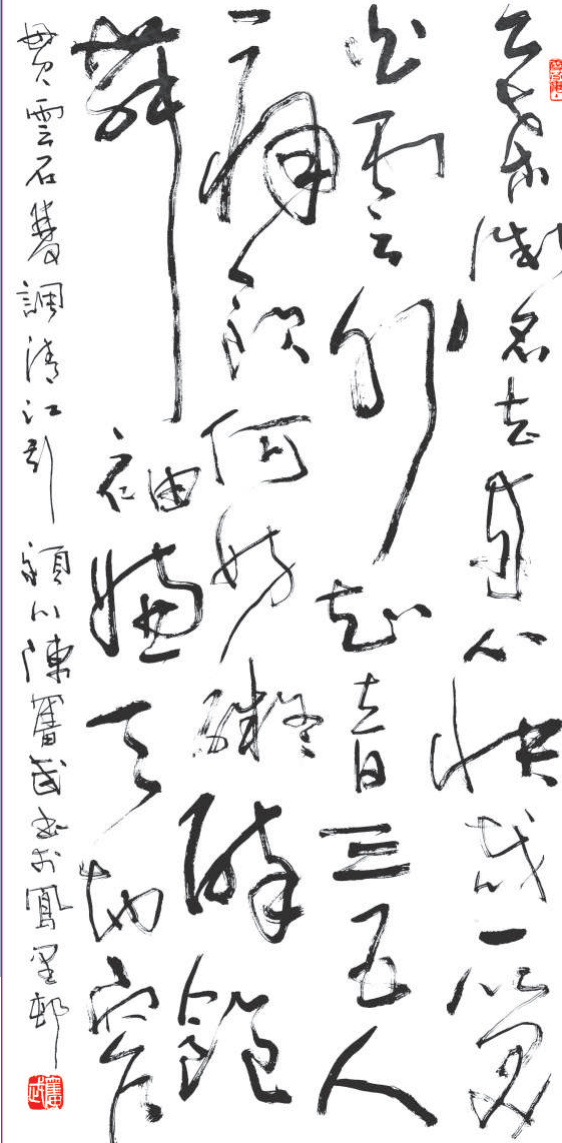 棄微名去來心快哉一笑
白雲外知音三五人
痛飲何妨礙醉袍
舞袖嫌天地窄
貫雲石雙調清江引 潁川陳奮武書於鳳里邨
奮武